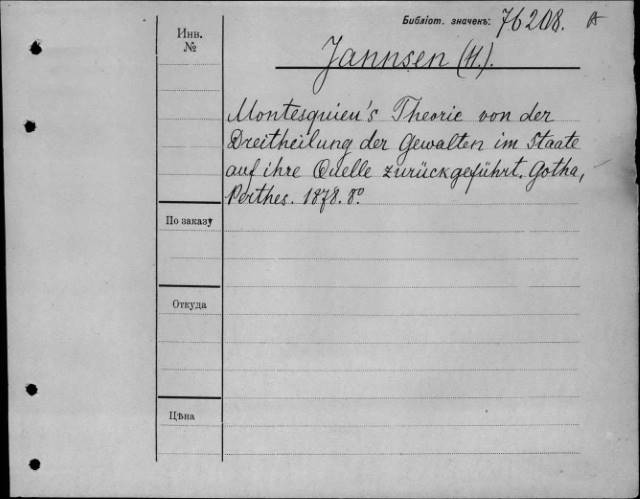 Библіот. значекъ: 76208. A
Инв.
№
Jannsen (H.).
Montesquieu's Theorie von der
Dreitheilung der Gewalten im Staate
auf ihre Quelle zurückgeführt. Gotha,
Perthes. 1878. 8º
По заказу
Откуда
Цѣна